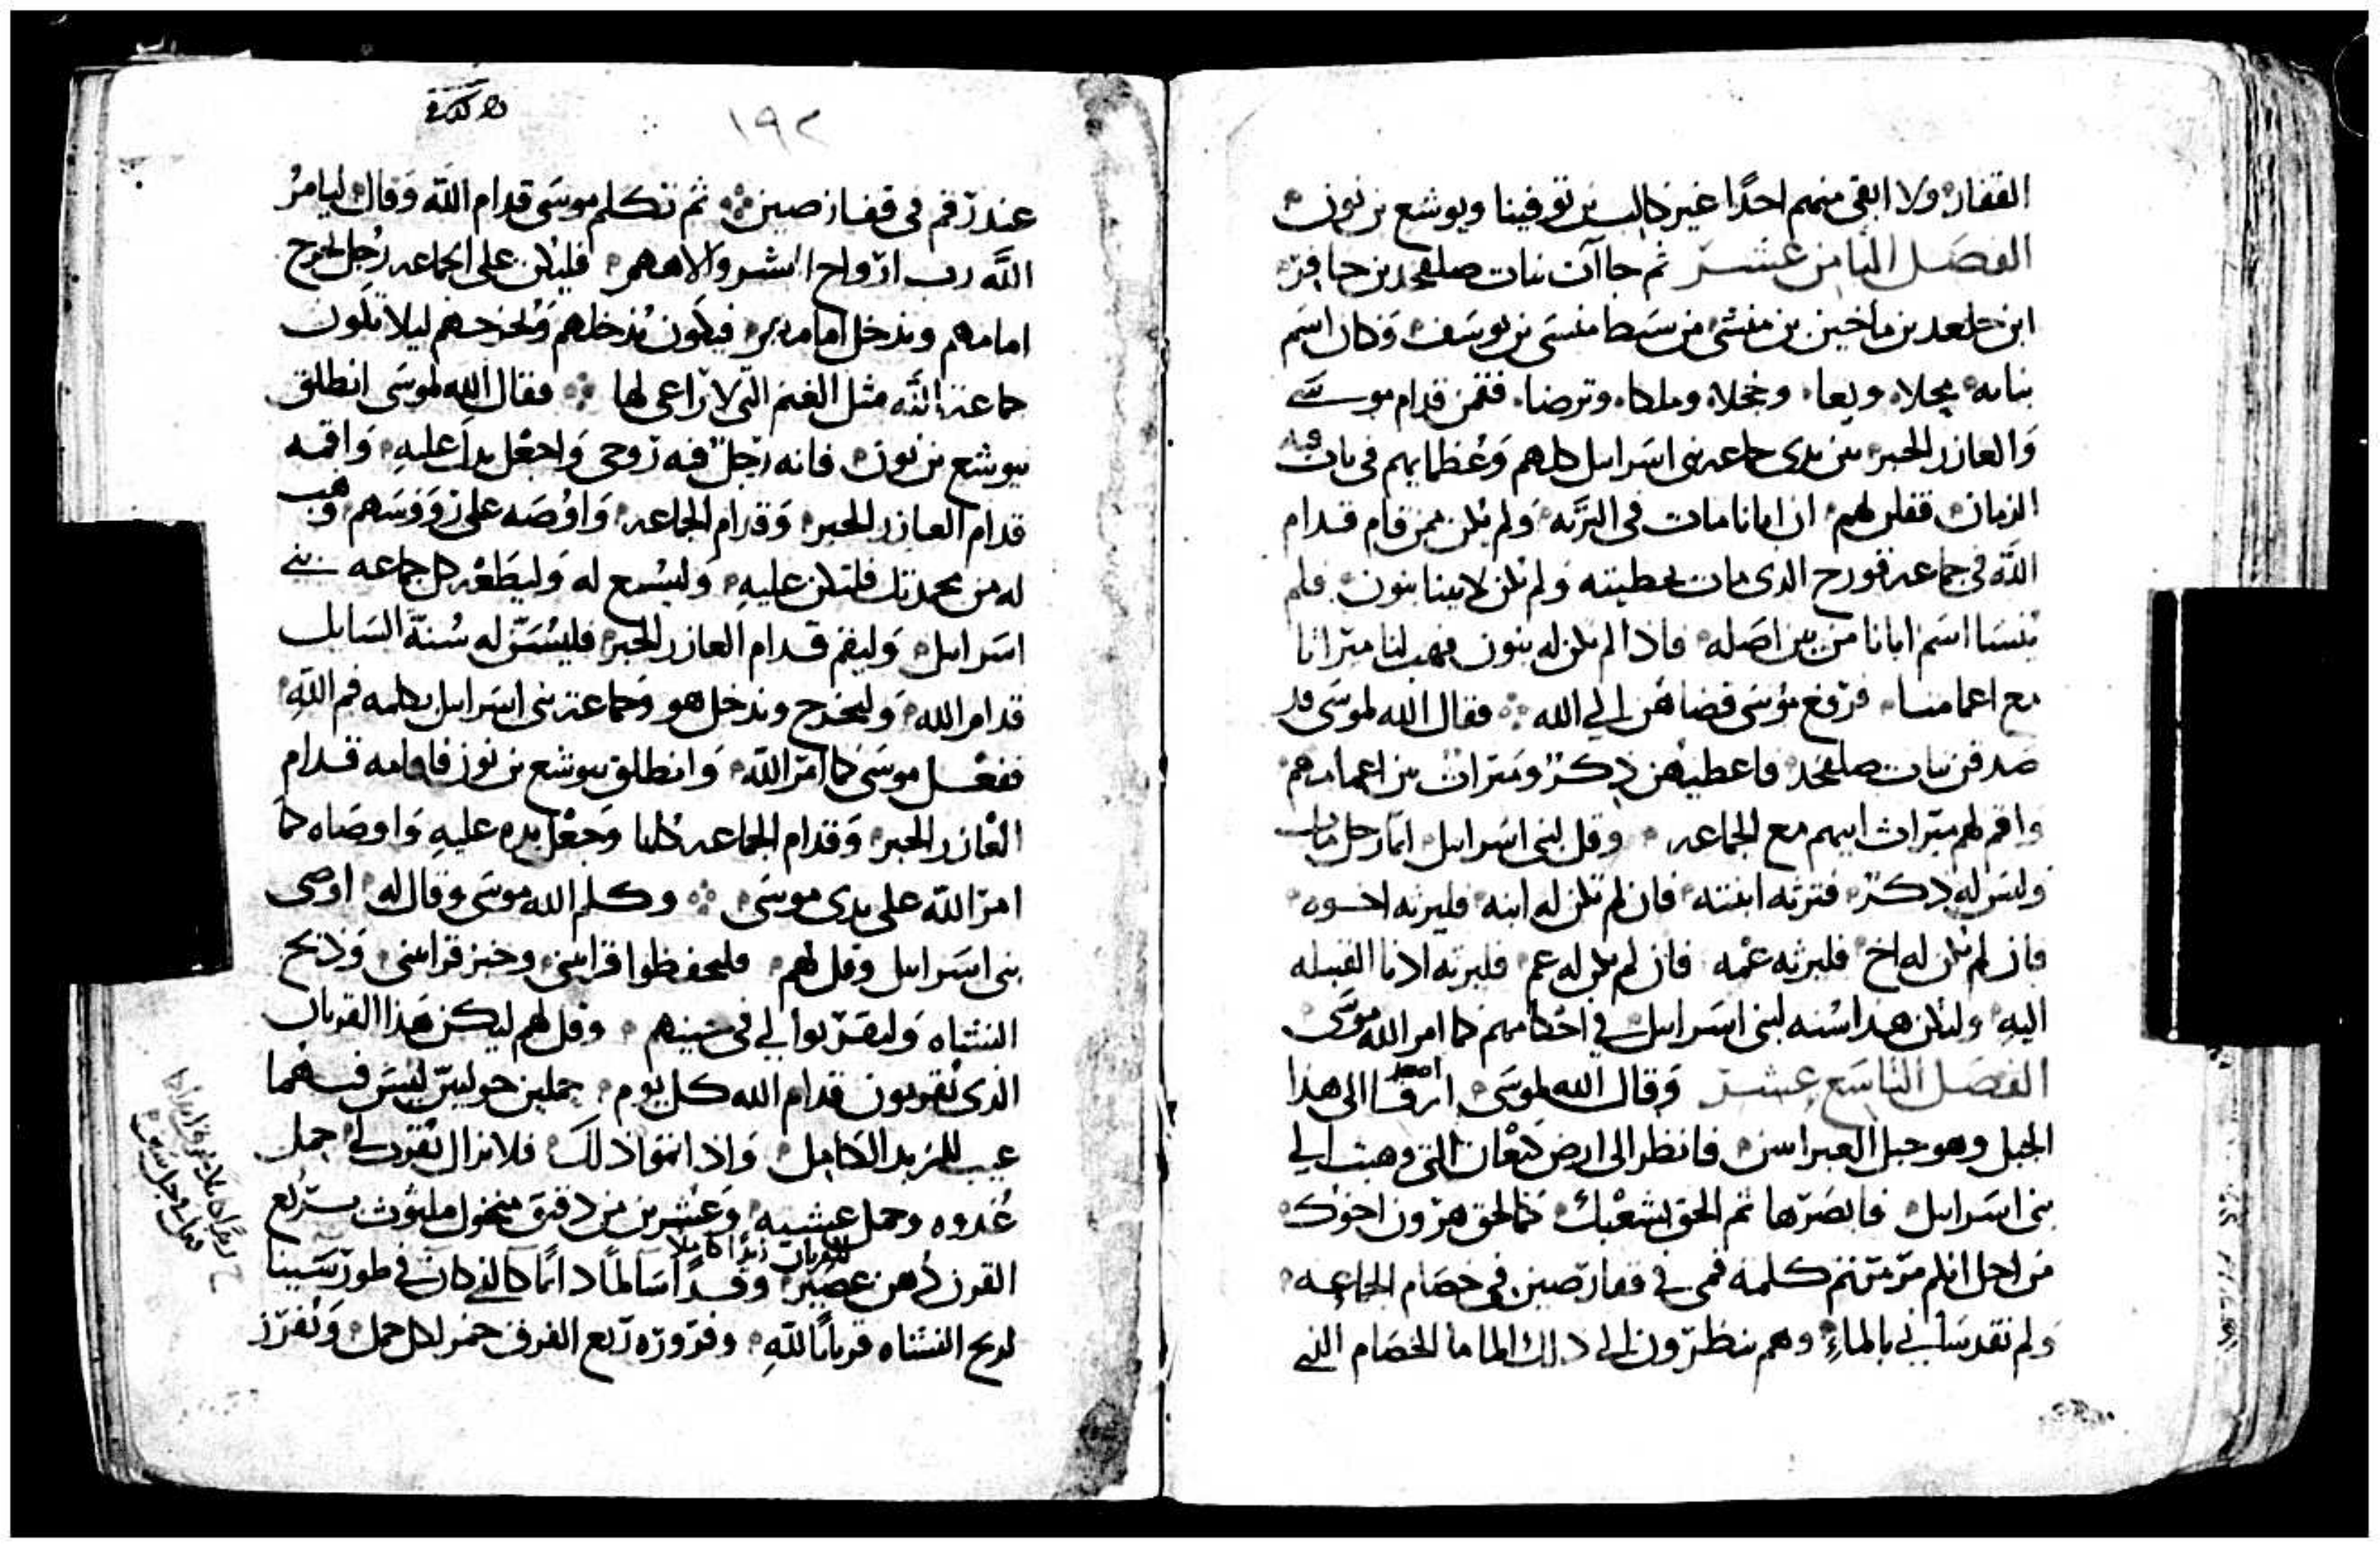 القفار ولا ابقى منهم احدًا غير كالب بن توفينا ويوشع بن نون
الفصل الثامن عشر ثم جاآت بنات صلفحد بن حافر
ابن جلعد بن ماخير بن منشى من سبط منسى بن يوسف وكان اسم
بناته محلا ونعا وحجلا وملكا وترصا فقمن قدام موسى
والعازر الحبر بين يدى جماعة بنى اسرايل كلهم وعظمايهم فى باب قبة
الزمان فقلن لهم ان ابانا مات فى البرية ولم يكن ممن قام قدام
الله فى جماعة قورح الذى مات بخطيته ولم يكن لابينا بنون فلم
ينسا اسم ابانا من بين اصله فاذا لم يكن له بنون فهب لنا ميراثا
مع اعمامنا فرفع موسى قضاهن الى الله فقال الله لموسى قد
صدقن بنات صلفحد فاعطيهن ذكر وميراث بين اعمامهم
واقم لهم ميراث ابيهم مع الجماعه وقل لبنى اسرايل ايما رجل مات
وليس له ذكر فترثه ابنته فان لم تكن له ابنه فليرثه اخوه
فان لم يكن له اخ فليرثه عمه فان لم يكن له عم فليرثه ادنا القبيله
اليه وليكن هذا سنه لبنى اسرايل فى احكامهم كما امر الله موسى
الفصل التاسع عشر وقال الله لموسى ارقا اصعد الى هذا
الجبل وهو جبل العبراسن فانظر الى ارض كنعان التى وهبت الى
بنى اسرايل فابصرها ثم الحق بشعبك كما لحق هرون اخوك
من اجل انكم مرمرتم كلمة فمى فى قفار صين فى خصام الجماعه
ولم تقدسانى بالماء وهم ينظرون الى ذلك الما ما الخصام التى
١٩٢
عند رقم فى قفار صين ثم تكلم موسى قدام الله وقال ليامر
الله رب ارواح البشر والاههم فليكن على الجماعه رجل يخرج
امامهم ويدخل امامهم فيكون يدخلهم ويخرجهم ليلا تكون
جماعة الله مثل الغنم التى لا راعى لها فقال الله لموسى انطلق
بيوشع بن نون فانه رجل فيه روحى واجعل يدك عليه واقمه
قدام العازر الحبر وقدام الجماعه واوصه على رووسهم وهب
له من محمدتك فلتكن عليه وليسمع له وليطعه كل جماعه بنى
اسرايل وليقم قدام العازر الحبر فليسير له سنة السايل
قدام الله وليخرج ويدخل هو وجماعة بنى اسرايل بكلمه فم الله
ففعل موسى كما امر الله وانطلق بيوشع بن نون فاقامه قدام
العازر الحبر وقدام الجماعه كلها وجعل يده عليه واوصاه كما
امر الله على يدى موسى وكلم الله موسى وقال له اوصى
بنى اسرايل وقل لهم فليحفظوا قرابينى وخبز قرابينى وذبح
النشتاه وليقربوا لى فى حينهم وقل لهم ليكن هذا القربان
الذى تقربون قدام الله كل يوم جملين حوليين ليس فيهما
عيب للمزيد الكامل واذا اتموا ذلك فلا تزال تقرب لى جمل
غدوه وجمل عشيه وعشر من دقيق منخول ملتوت بربع
القرن دهن عصير وقدًا سالمًا دايمًا كالذى كان فى طور سينا
للقربان زيدا كاملا
لريح النشتاه قربانًا لله وقروره ربع الفرق خمر لكل حمل ويفرز